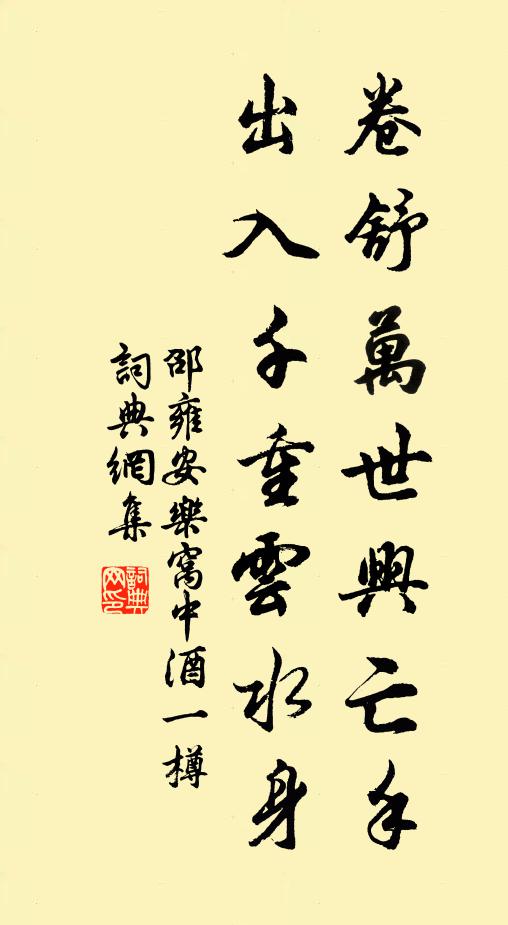 卷舒萬世興亡手
出入千重雲水身
邵雍安樂窩中酒一樽
詞典網集
詞典網印